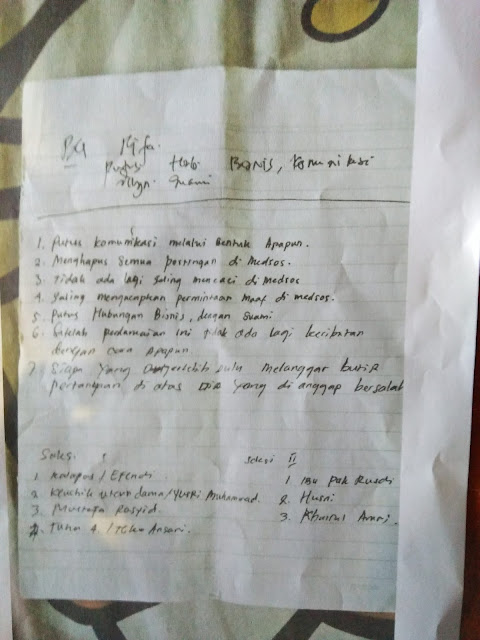 BA Rifa.
Putus Hub. Bisnis, Komunikasi
dengn. suami
1. Putus komunikasi melalui Bentuk Apapun.
2. Menghapus semua postingan di Medsos.
3. Tidak ada lagi saling mencaci di medsos
4. Saling mengucapkan permintaan Maaf di medsos.
5. Putus Hubungan Bisnis, dengan suami
6. Setelah perdamaian ini tidak ada lagi keributan
dengan cara Apapun
7. Siapa yang dulu Melanggar butir
pertanyaan di atas DIA yang di anggap bersalah
Saksi I
1. / Efendi
2. Keuchik / Yusri Muhammad.
3. Mustafa Rasyid.
4. Tuha 4. / Ansari.
Saksi II
1. Ibu Pak Rusdi
2. Husni
3. Khairul